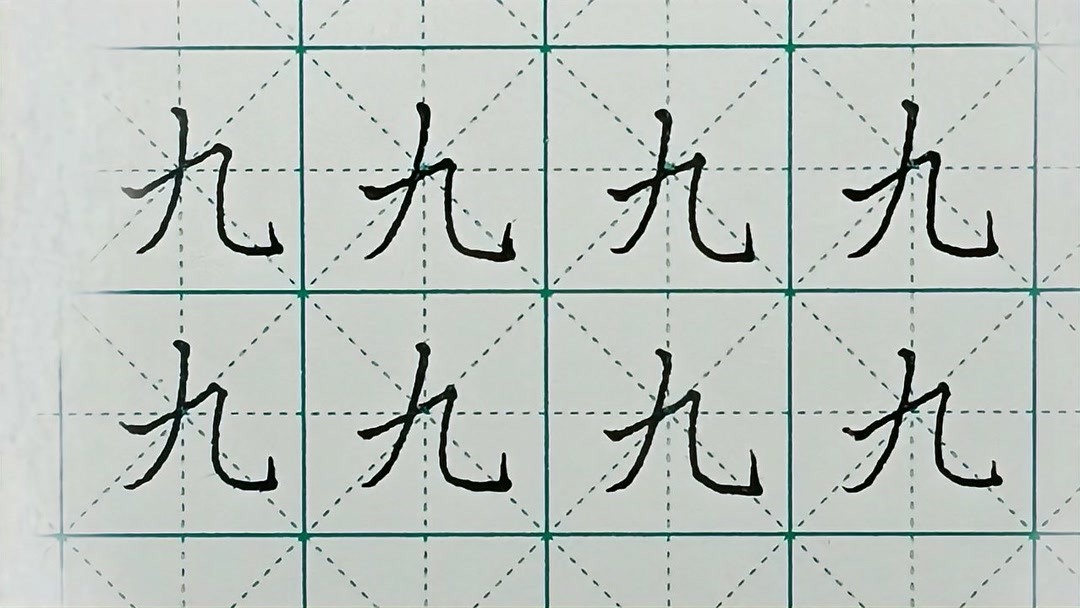 九九九九
九九九九